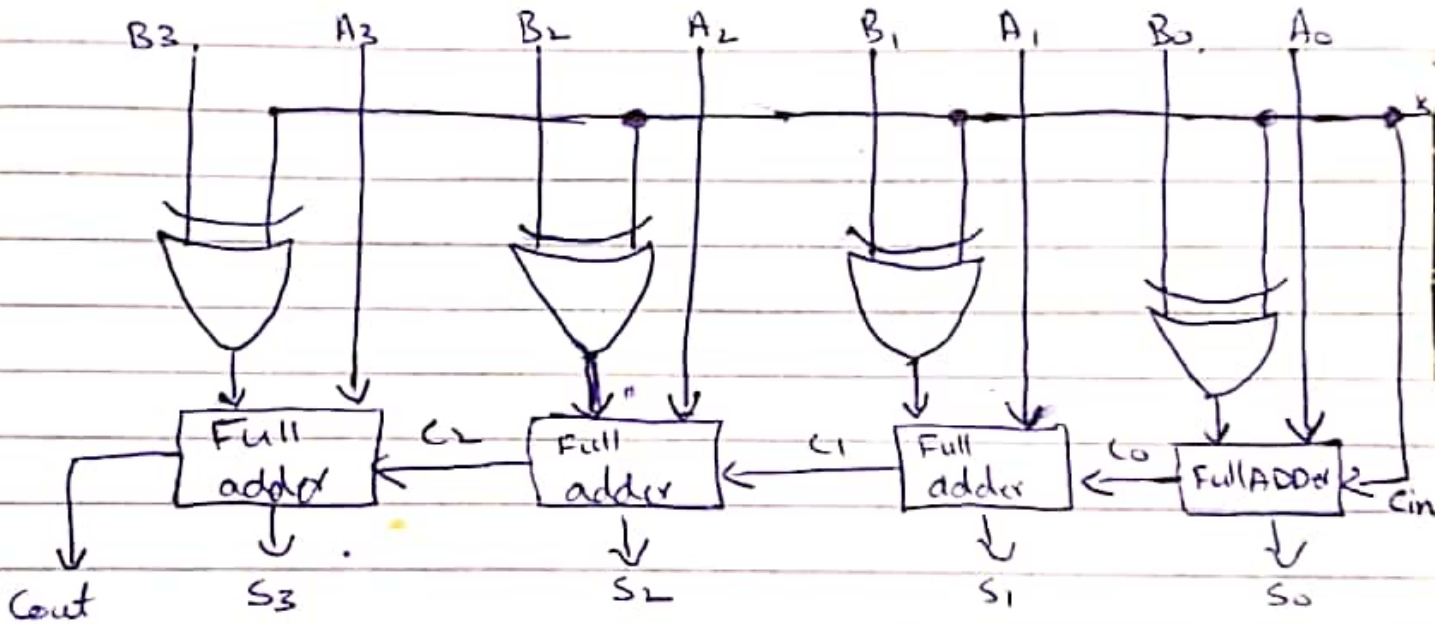 B3 A3 B2 A2 B1 A1 B0 A0
Full adder
C2
Full adder
C1
Full adder
C0
Full ADDer
Cin
Cout S3 S2 S1 S0